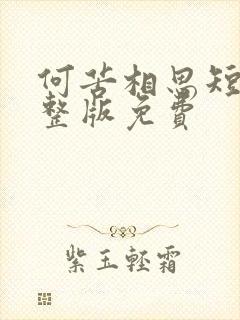 何苦相思短
整版免费
紫玉轻霜